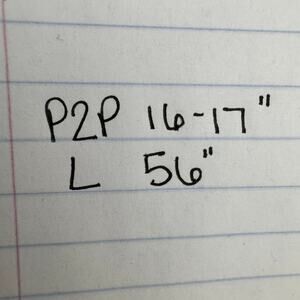 P2P 16-17"
L 56"